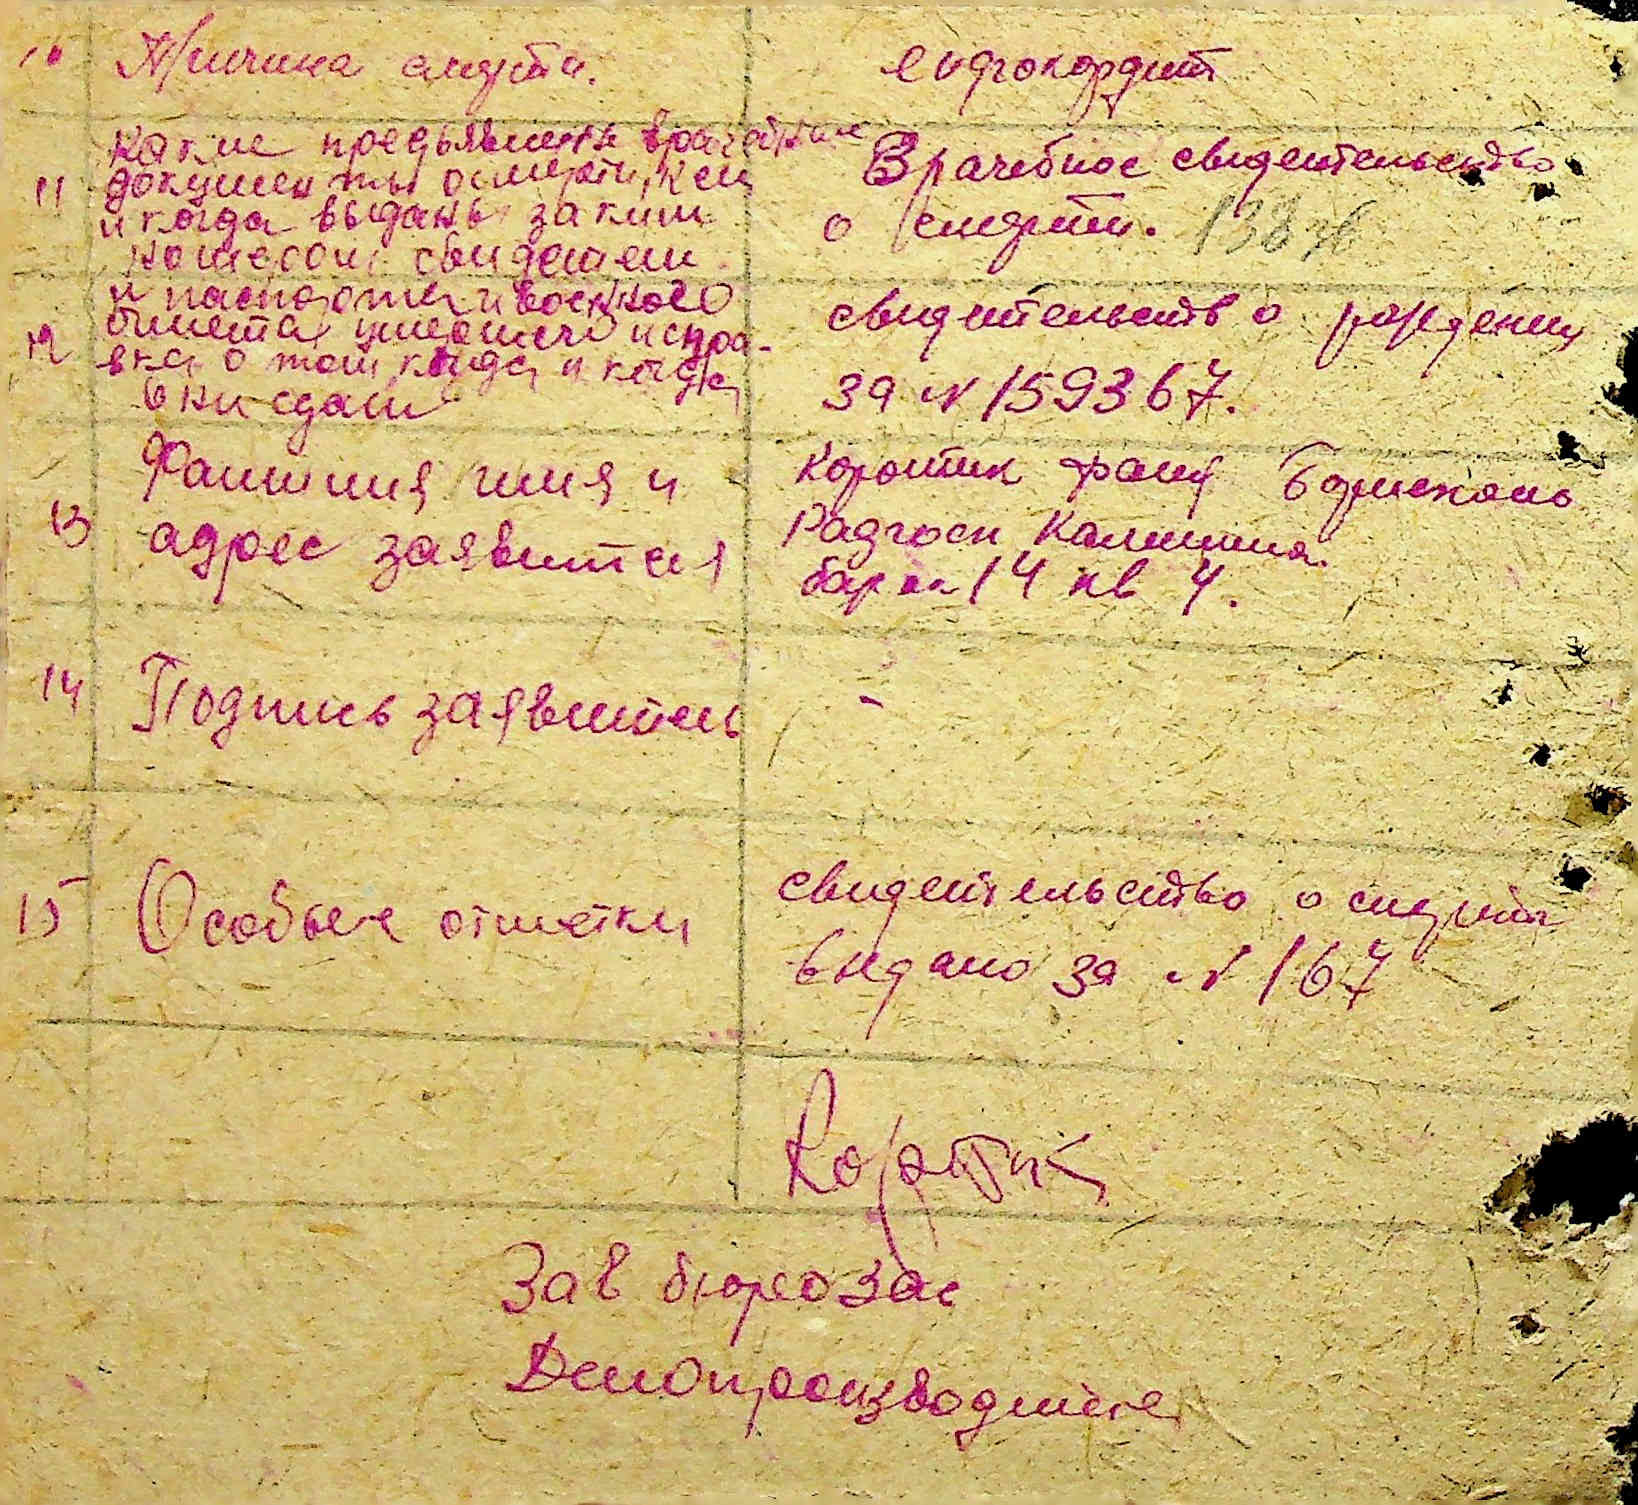 10 Причина смерти. ендгокордит
11 Какие предъявлены врачебные
документы о смерти, кем
и когда выданы за каким
номером свидетели
Врачебное свидетельство
о смерти. 138
12 № паспорта и военного
билета умершего и спра-
вка о том, куда и когда
они сданы
свидетельств о рождении
за N 159367.
13 Фамилия имя и
адрес заявителя
Коротик Фаня Борисполь
Калинина.
барак 14 кв 4.
14 Подпись заявитель -
15 Особые отметки
свидетельство о смерти
выдано за N 167
Коротик
Зав бюро загс
Делопроизводитель